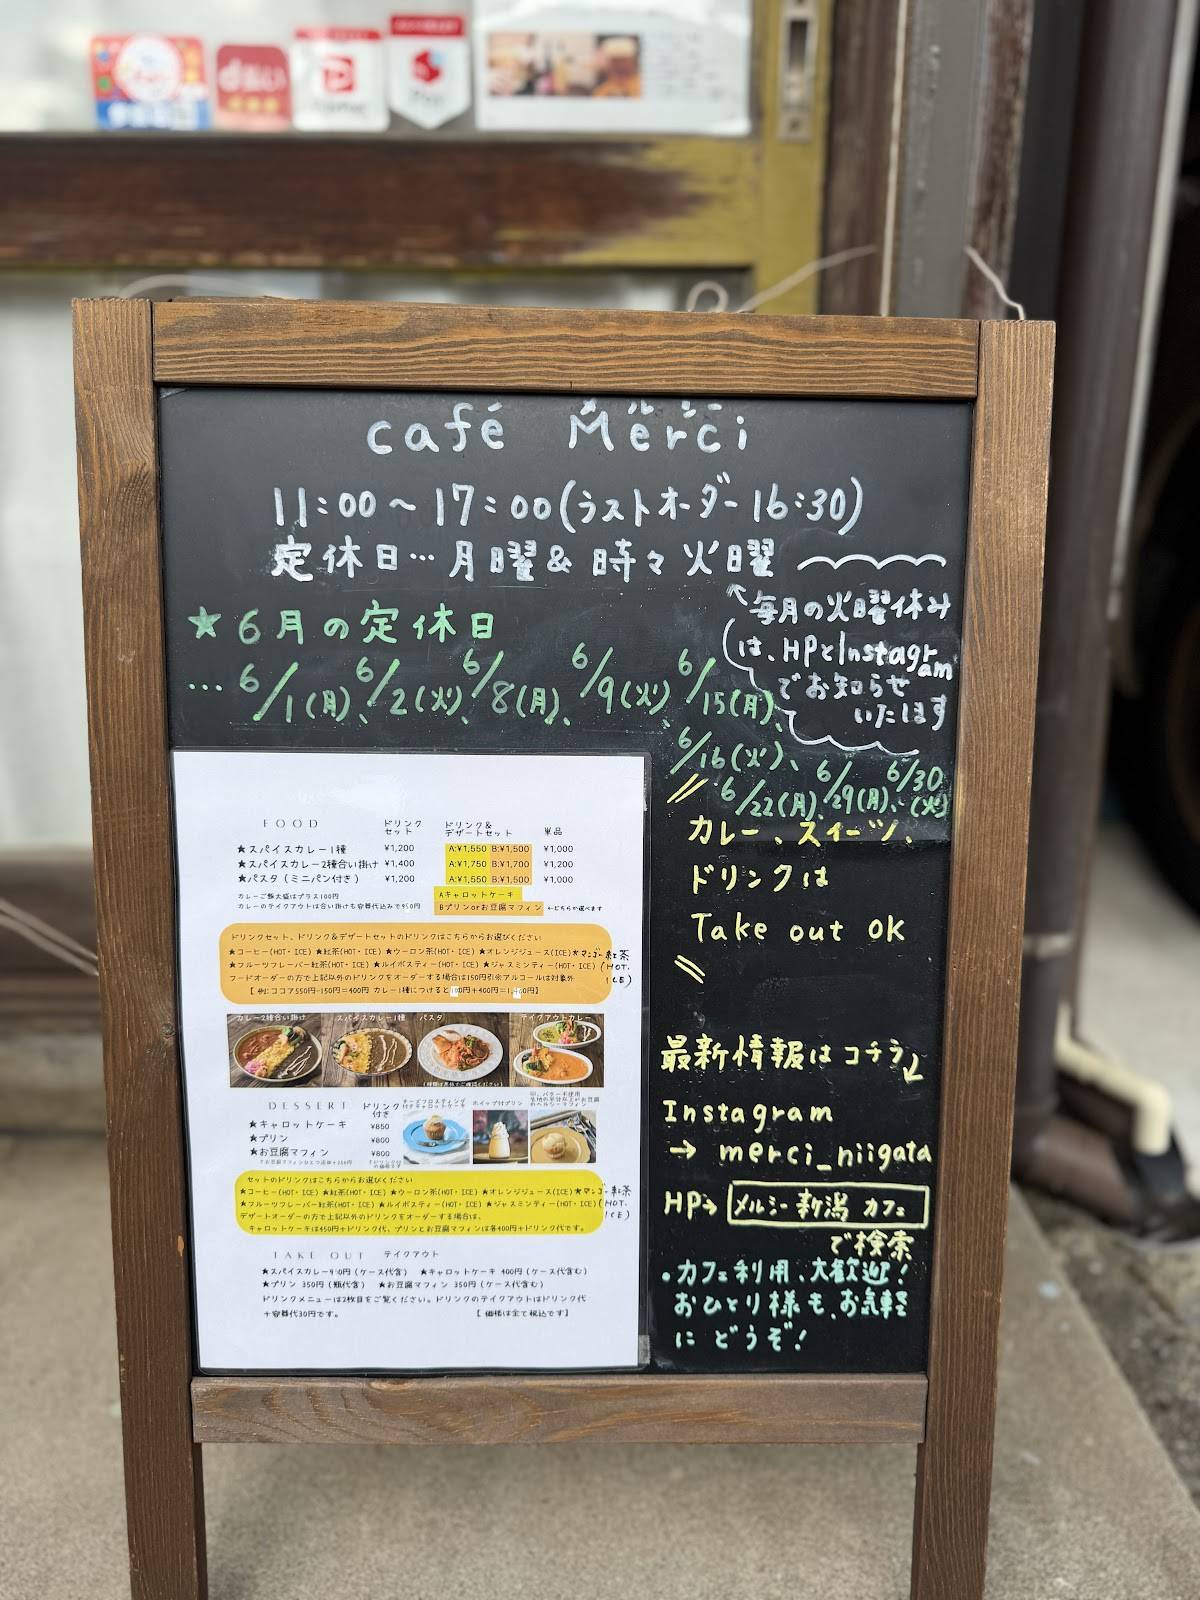 d払い
メルシー
café Merci
11:00～17:00(ラストオーダー16:30)
定休日…月曜&時々火曜
↖毎月の火曜休み
は、HPとInstagram
でお知らせ
いたします
★6月の定休日
…6/1(月)、6/2(火)、6/8(月)、6/9(火)、6/15(月)、
6/16(火)、
6/22(月)、6/29(月)、6/30(火)
カレー、スイーツ、
ドリンクは
Take out OK
最新情報はコチラ
Instagram
→ merci_niigata
HP→ メルシー 新潟 カフェ
で検索
・カフェ利用、大歓迎!
おひとり様も、お気軽
にどうぞ!
FOOD ドリンクセット ドリンク&デザートセット 単品
★スパイスカレー1種 ¥1,200 A:¥1,550 B:¥1,500 ¥1,000
★スパイスカレー2種合い掛け ¥1,400 A:¥1,750 B:¥1,700 ¥1,200
★パスタ（ミニパン付き） ¥1,200 A:¥1,550 B:¥1,500 ¥1,000
カレーご飯大盛はプラス100円 Aキャロットケーキ
カレーのテイクアウトは合い掛けも容器代込みで950円 Bプリンorお豆腐マフィン ←どちらか選べます
ドリンクセット、ドリンク&デザートセットのドリンクはこちらからお選びください
★コーヒー(HOT・ICE) ★紅茶(HOT・ICE) ★ウーロン茶(HOT・ICE) ★オレンジジュース(ICE) ★マンゴー紅茶
★フルーツフレーバー紅茶(HOT・ICE) ★ルイボスティー(HOT・ICE) ★ジャスミンティー(HOT・ICE) (HOT・ICE)
フードオーダーの方で上記以外のドリンクをオーダーする場合は150円引※アルコールは対象外
カレー2種合い掛け スパイスカレー1種 パスタ テイクアウトカレー
(種類は黒板でご確認ください)
DESSERT ドリンク付き
★キャロットケーキ ¥850
★プリン ¥800
★お豆腐マフィン ¥800
チーズフロスティング付きキャロットケーキ ホイップ付プリン
セットのドリンクはこちらからお選びください
★コーヒー(HOT・ICE) ★紅茶(HOT・ICE) ★ウーロン茶(HOT・ICE) ★オレンジジュース(ICE) ★マンゴー紅茶
★フルーツフレーバー紅茶(HOT・ICE) ★ルイボスティー(HOT・ICE) ★ジャスミンティー(HOT・ICE) (HOT・ICE)
デザートオーダーの方で上記以外のドリンクをオーダーする場合は、
キャロットケーキは450円+ドリンク代、プリンとお豆腐マフィンは各400円+ドリンク代です。
TAKE OUT テイクアウト
★スパイスカレー950円（ケース代含） ★キャロットケーキ 400円（ケース代含む）
★プリン 350円（瓶代含） ★お豆腐マフィン 350円（ケース代含む）
ドリンクメニューは2枚目をご覧ください。ドリンクのテイクアウトはドリンク代
+容器代30円です。 【 価格は全て税込です】